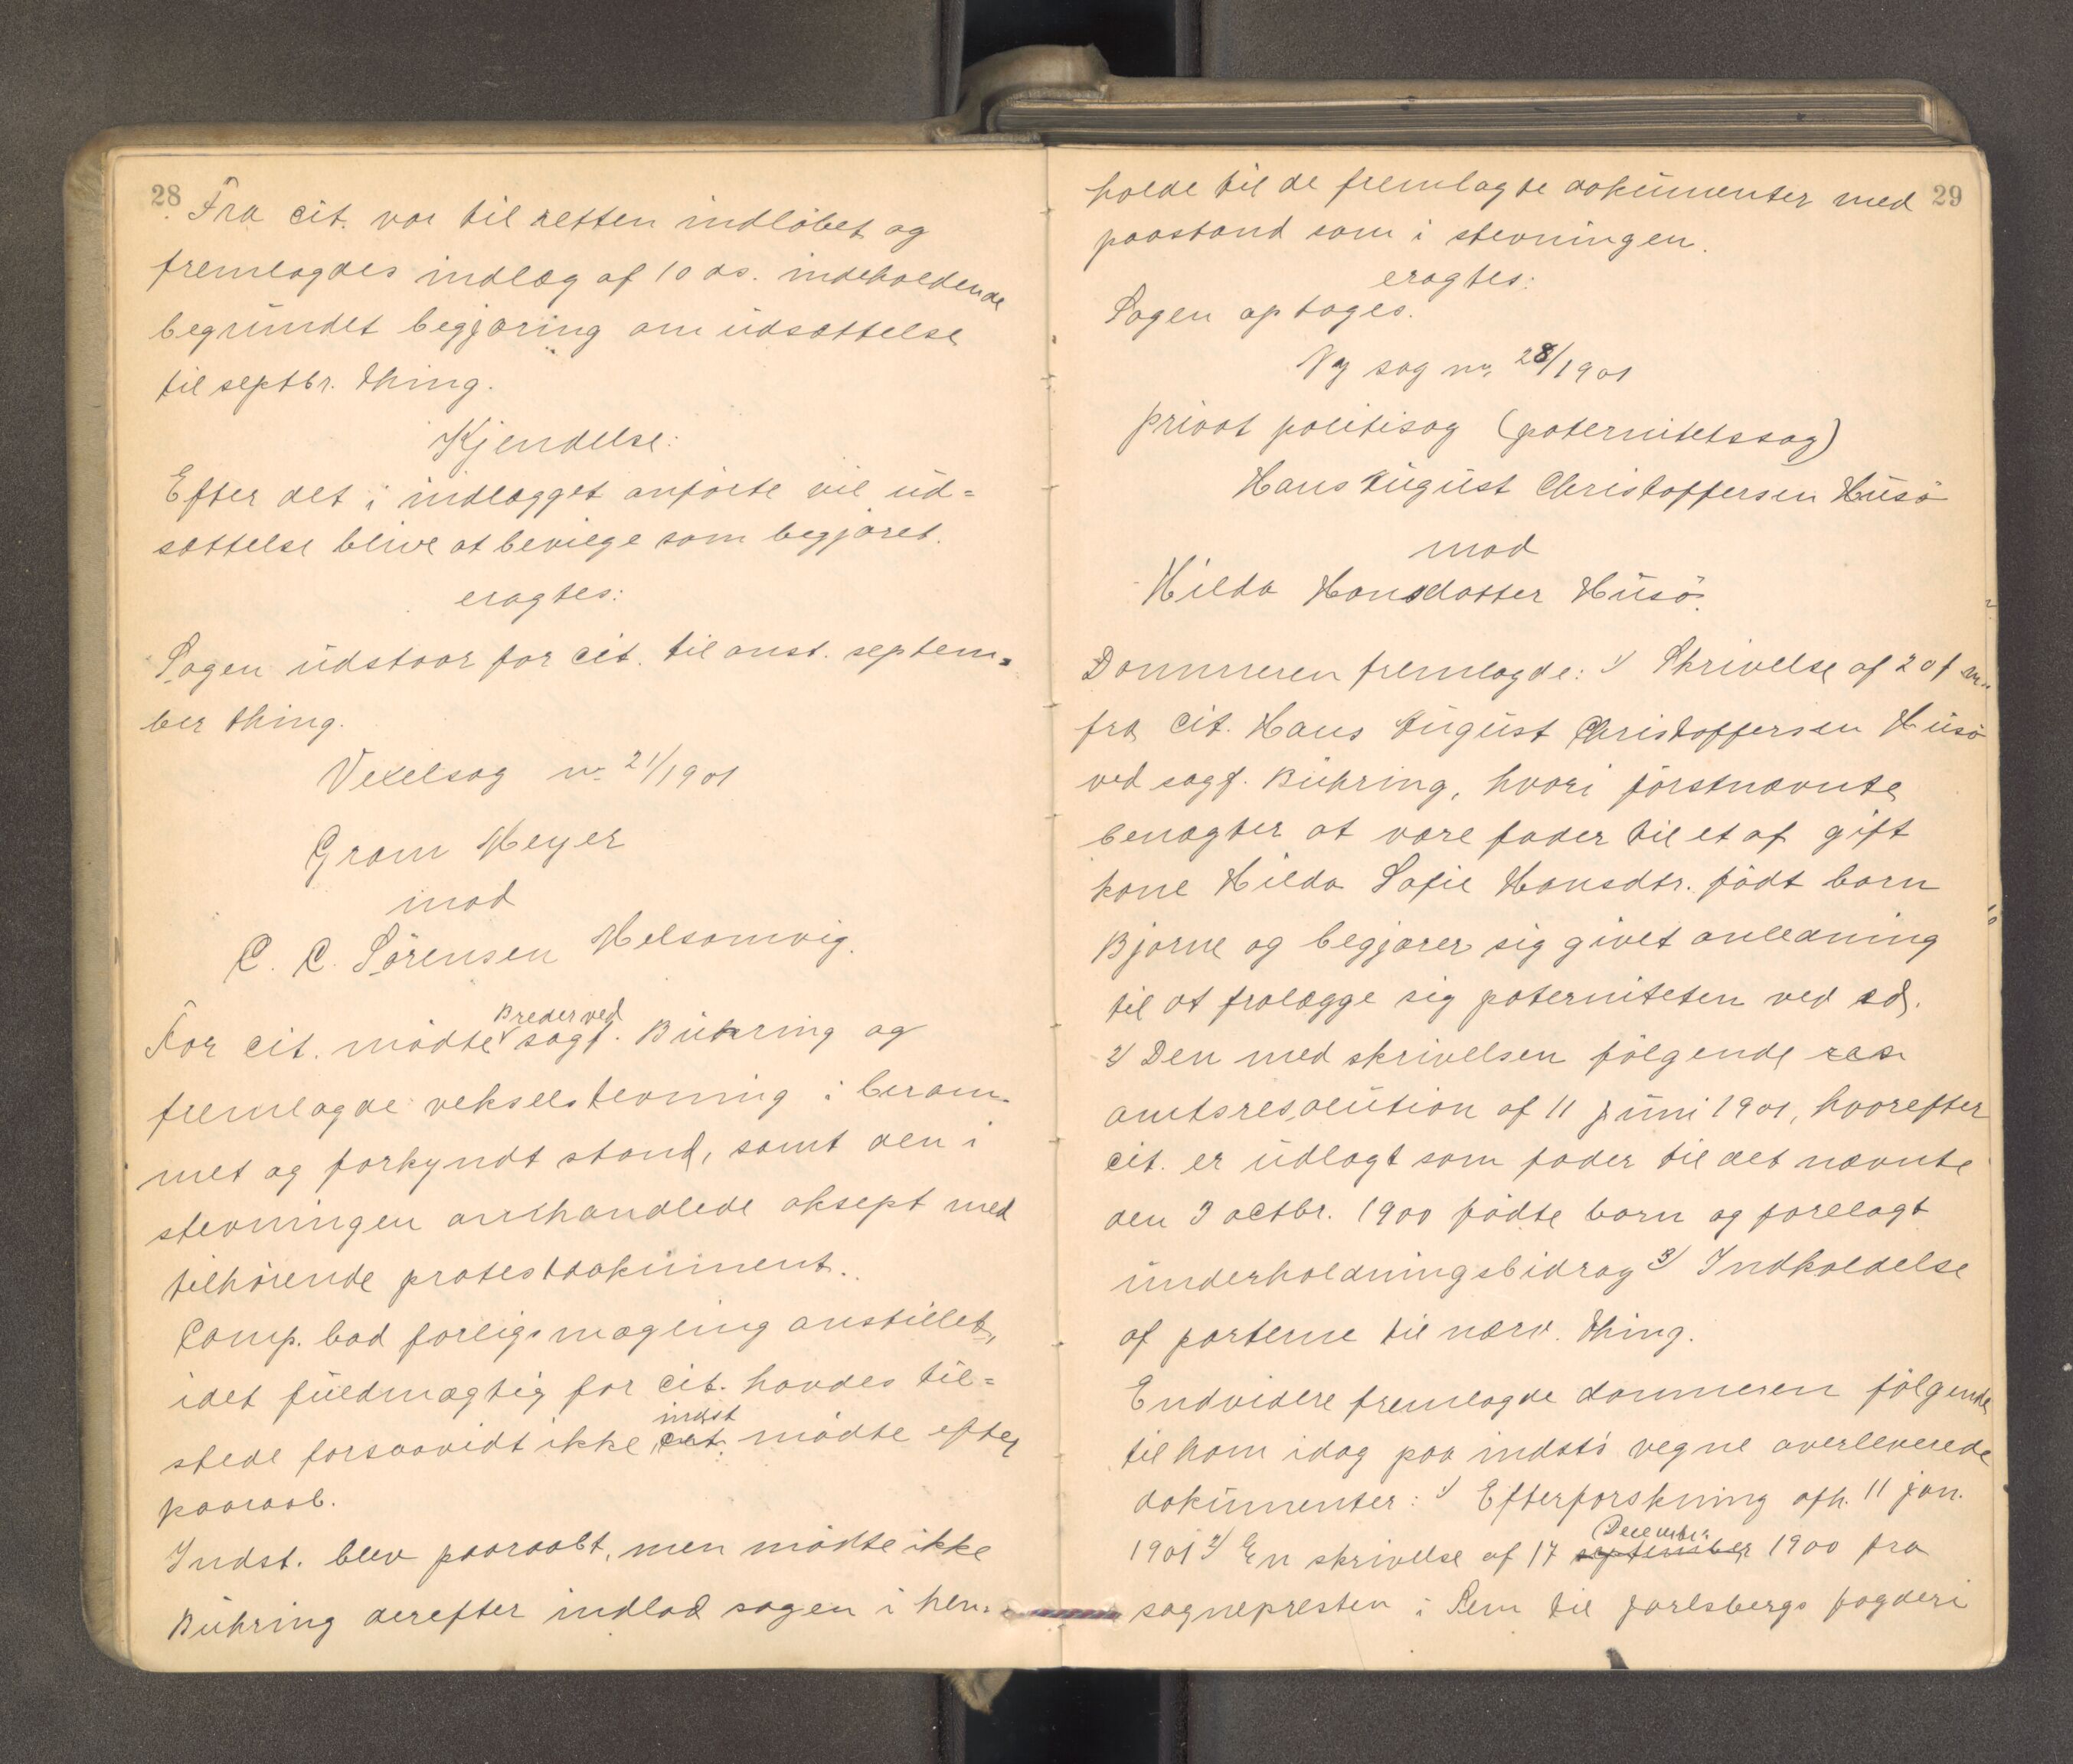 28
Fra cit. var til retten indløbet og
fremlagdes indlæg af 10 ds. indeholdende
begrundet begjæring om udsættelse
til septbr. thing.
Kjendelse:
Efter det i indlægget anførte vil ud=
sættelse blive at bevilge som begjæret.
eragtes:
Sagen udstaar for cit. til anst. septem=
ber thing.
Vexelsag no 21/1901
Gram Meyer
mod
C. C. Sørensen Melsomvig.
Breder ved
For cit. mødte sagf. Bühring og
fremlagde vekselstevning i beram-
met og forkyndt stand, samt den i
stevningen omhandlede aksept med
tilhørende protestdokument.
Comp. bad forligsmægling anstillet,
idet fuldmægtig for cit. havdes til=
indst
stede forsaavidt ikke cit. mødte efter
paaraab.
Indst. blev paaraabt, men mødte ikke
Bühring derefter indlod sagen i hen-
29
holde til de fremlagte dokumenter med
paastand som i stevningen.
eragtes:
Sagen optages.
Ny sag no 28/1901
privat politisag (paternitetssag)
Hans August Christoffersen Husø
mod
Hilda Hansdatter Husø.
Dommeren fremlagde: 1/ Skrivelse af 20 f. m.
fra cit. Hans August Christoffersen Husø
ved sagf. Bühring, hvori førstnævnte
benægter at være fader til et af gift
kone Hilda Sofie Hansdtr. født barn
Bjarne og begjærer sig givet anledning
til at fralægge sig paterniteten ved ed.
2/ Den med skrivelsen følgende res
amtsresolution af 11 juni 1901, hvorefter
cit. er udlagt som fader til det nævnte
den 3 octbr. 1900 fødte barn og forelagt
underholdningsbidrag 3/ Indkaldelse
af parterne til nærv. thing.
Endvidere fremlagde dommeren følgende
til ham idag paa indst's vegne overleverede
dokumenter: 1/ Efterforskning afh. 11 jan.
December
1901 2/ En skrivelse af 17 september 1900 fra
sognepresten i Sem til Jarlsbergs fogderi